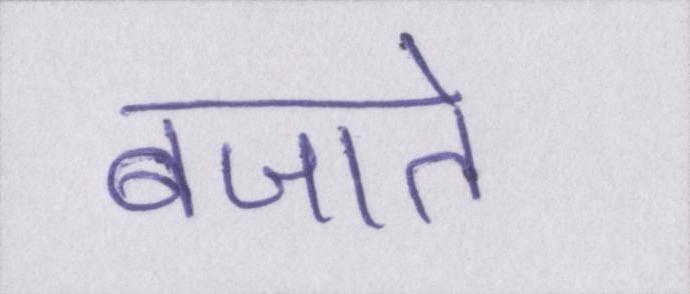 बजाते